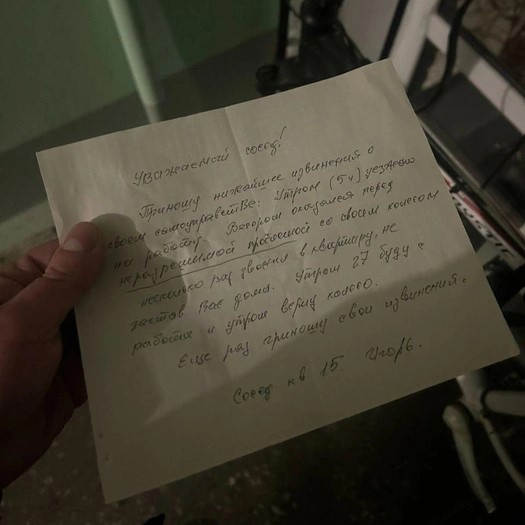 Уважаемый сосед!
Приношу нижайшие извинения о
своем самоуправстве: Утром (5ч) уезжаю
на работу. Вечером оказался перед
неразрешимой проблемой со своим колесом
несколько раз звонил в квартиру, не
застав Вас дома. Утром 27 буду с
работы и утром верну колесо.
Еще раз приношу свои извинения.
Сосед кв 15 Игорь.